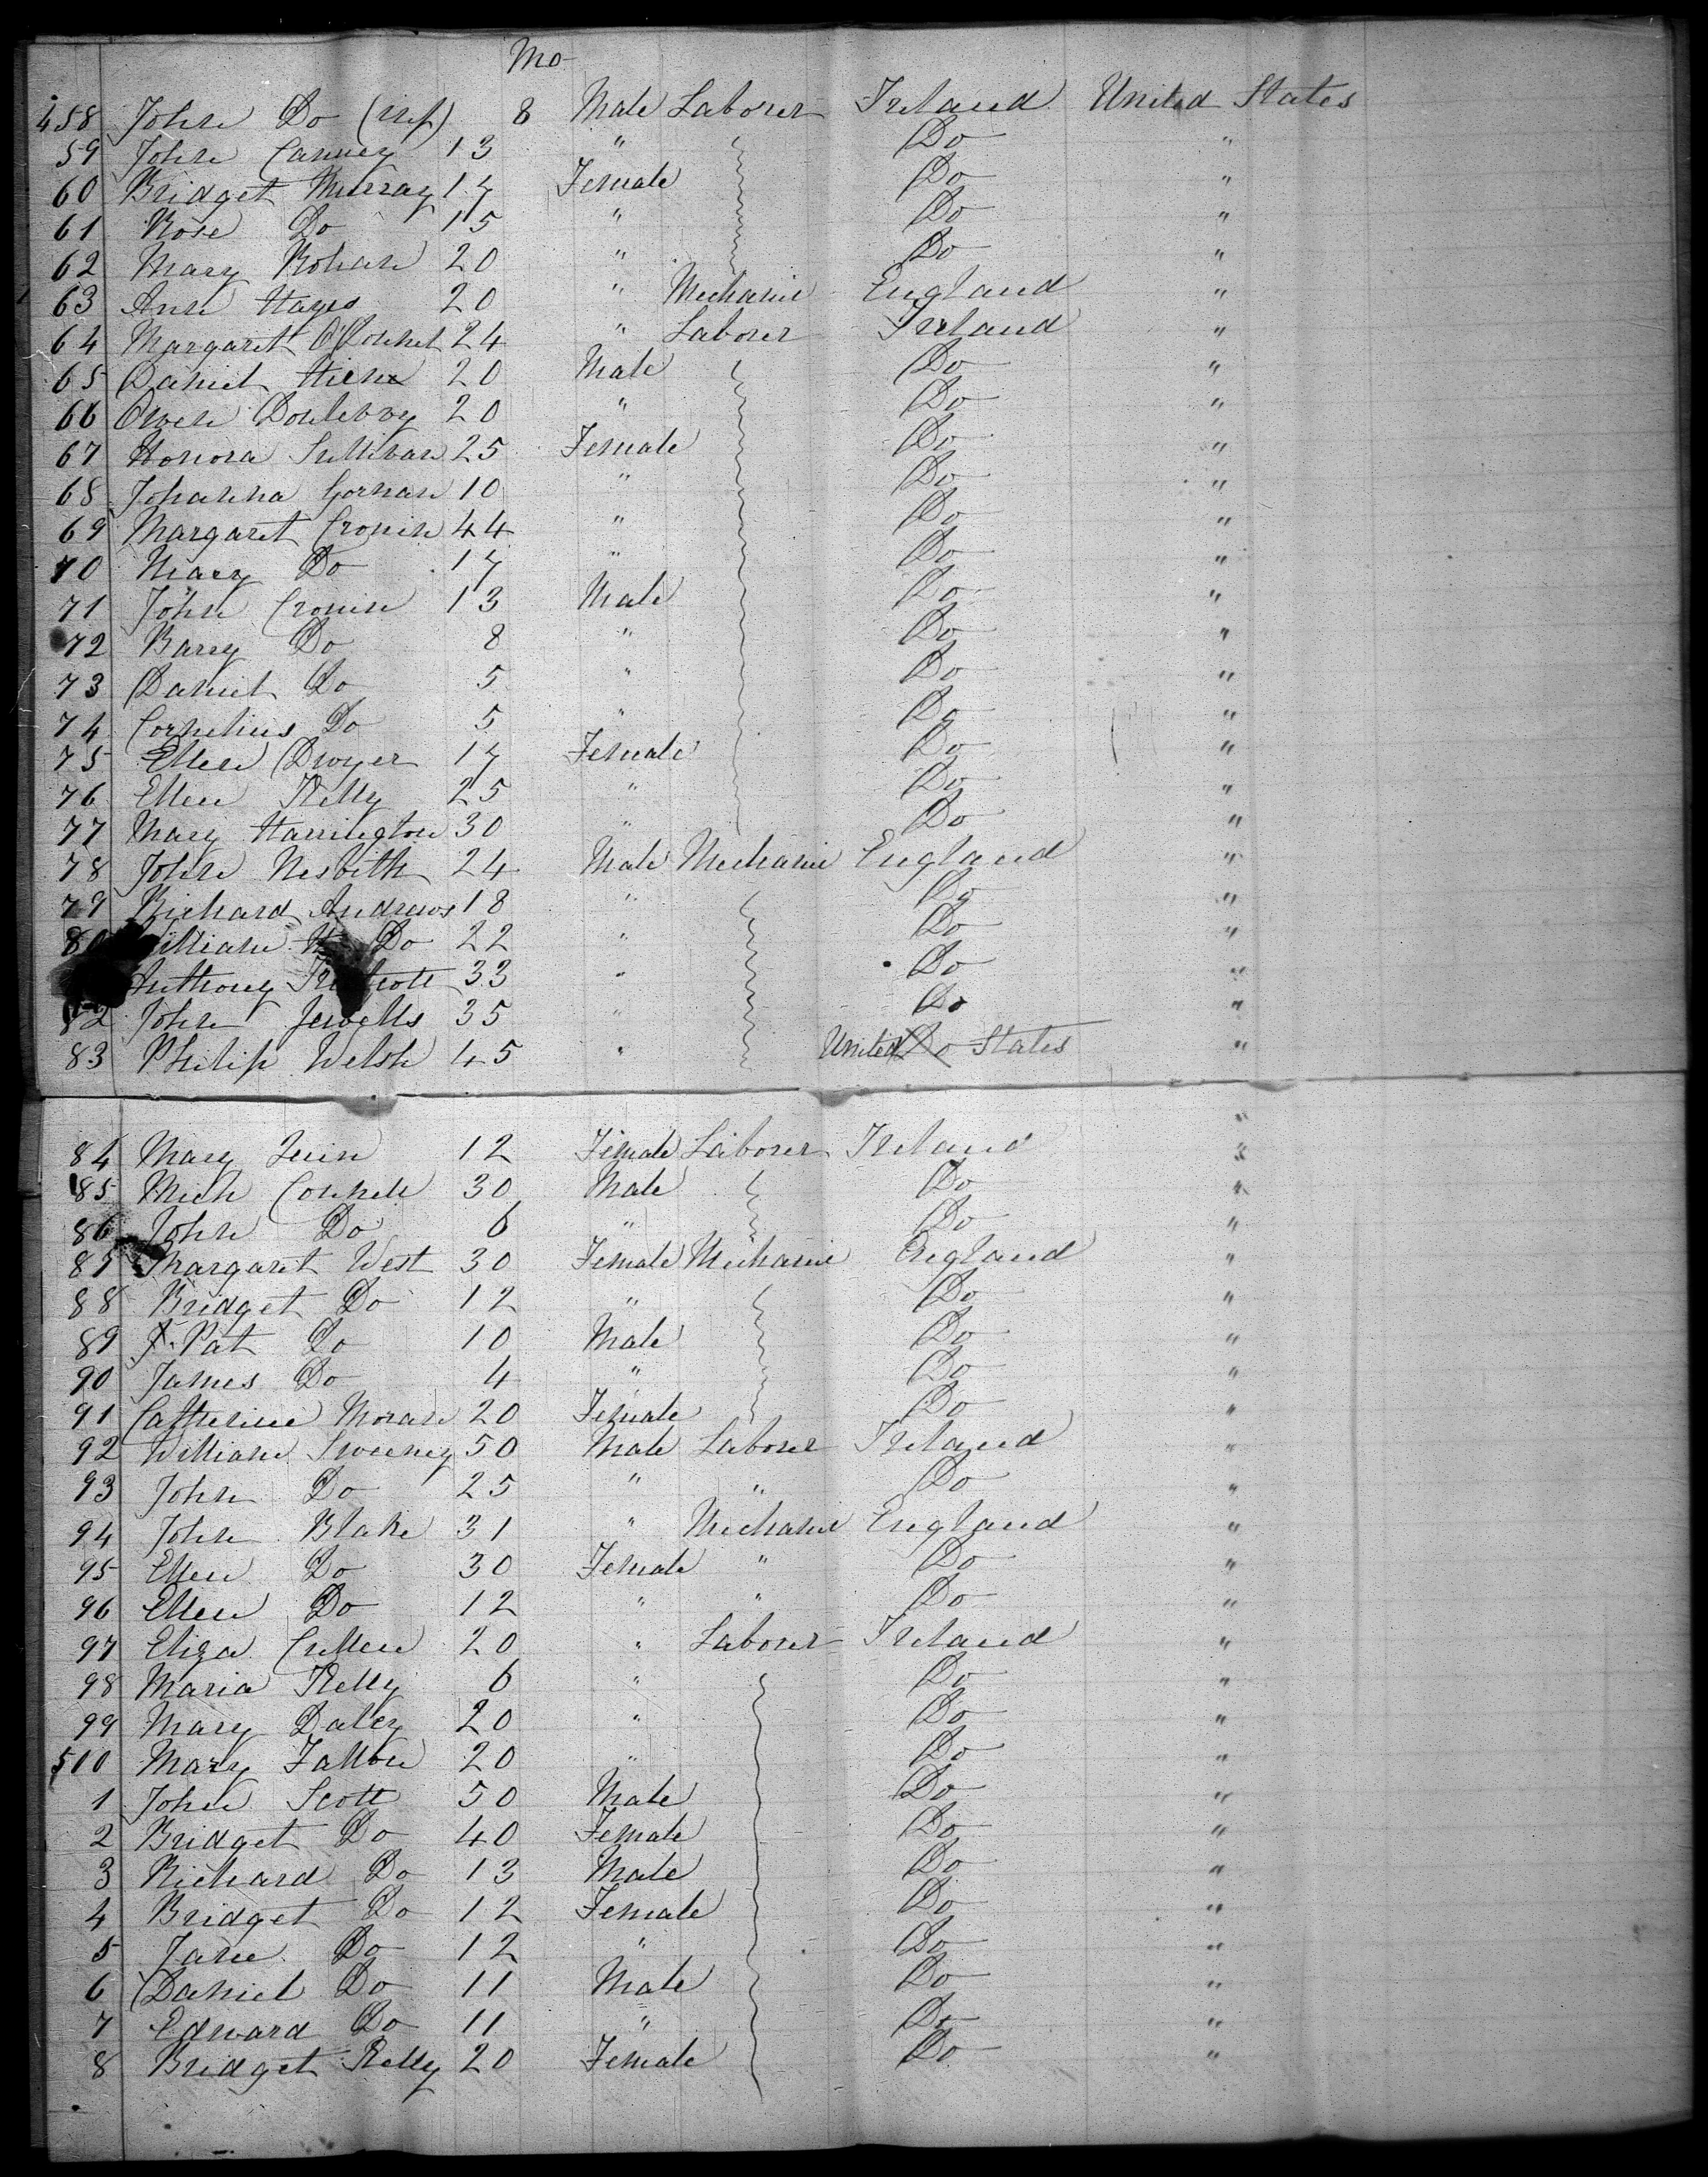 Mo
458 John Do (inf) 8 Male Laborer Ireland United States
59 John Canney 13 " Do "
60 Bridget Murray 17 Female Do "
61 Rose Do 15 " Do "
62 Mary Rohan 20 " Do "
63 Ann Hayes 20 " Mechanic England "
64 Margaret O'Connel 24 " Laborer Ireland "
65 Daniel 20 Male Do "
66 Owen Donlevvy 20 " Do "
67 Honora Sullivan 25 Female Do "
68 Johanna Gorman 10 " Do "
69 Margaret Cronin 44 " Do "
70 Mary Do 17 " Do "
71 John Cronin 13 Male Do "
72 Barry Do 8 " Do "
73 Daniel Do 5 " Do "
74 Cornelius Do 5 " Do "
75 Ellen Dwyer 17 Female Do "
76 Ellen Kelly 25 " Do "
77 Mary Harrington 30 " Do "
78 John Nesbith 24 Male Mechanic England "
79 Richard Andrews 18 " Do "
80 William H Do 22 " Do "
Anthony 33 " Do "
82 John Jewells 35 " Do "
83 Philip Welsh 45 " United Do States "
"
84 Mary Quin 12 Female Laborer Ireland "
85 Mich Connell 30 Male Do "
86 John Do 6 " Do "
87 Margaret West 30 Female Mechanic England "
88 Bridget Do 12 " Do "
89 Pat Do 10 Male Do "
90 James Do 4 " Do "
91 Catherine Moran 20 Female Do "
92 William Sweeney 50 Male Laborer Ireland "
93 John Do 25 " " Do "
94 John Blake 31 " Mechanic England "
95 Ellen Do 30 Female " Do "
96 Ellen Do 12 " " Do "
97 Eliza Cullen 20 " Laborer Ireland "
98 Maria Kelly 6 " Do "
99 Mary Daley 20 " Do "
500 Mary Fallon 20 " Do "
1 John Scott 50 Male Do "
2 Bridget Do 40 Female Do "
3 Richard Do 13 Male Do "
4 Bridget Do 12 Female Do "
5 Jane Do 12 " Do "
6 Daniel Do 11 Male Do "
7 Edward Do 11 " Do "
8 Bridget Kelly 20 Female Do "